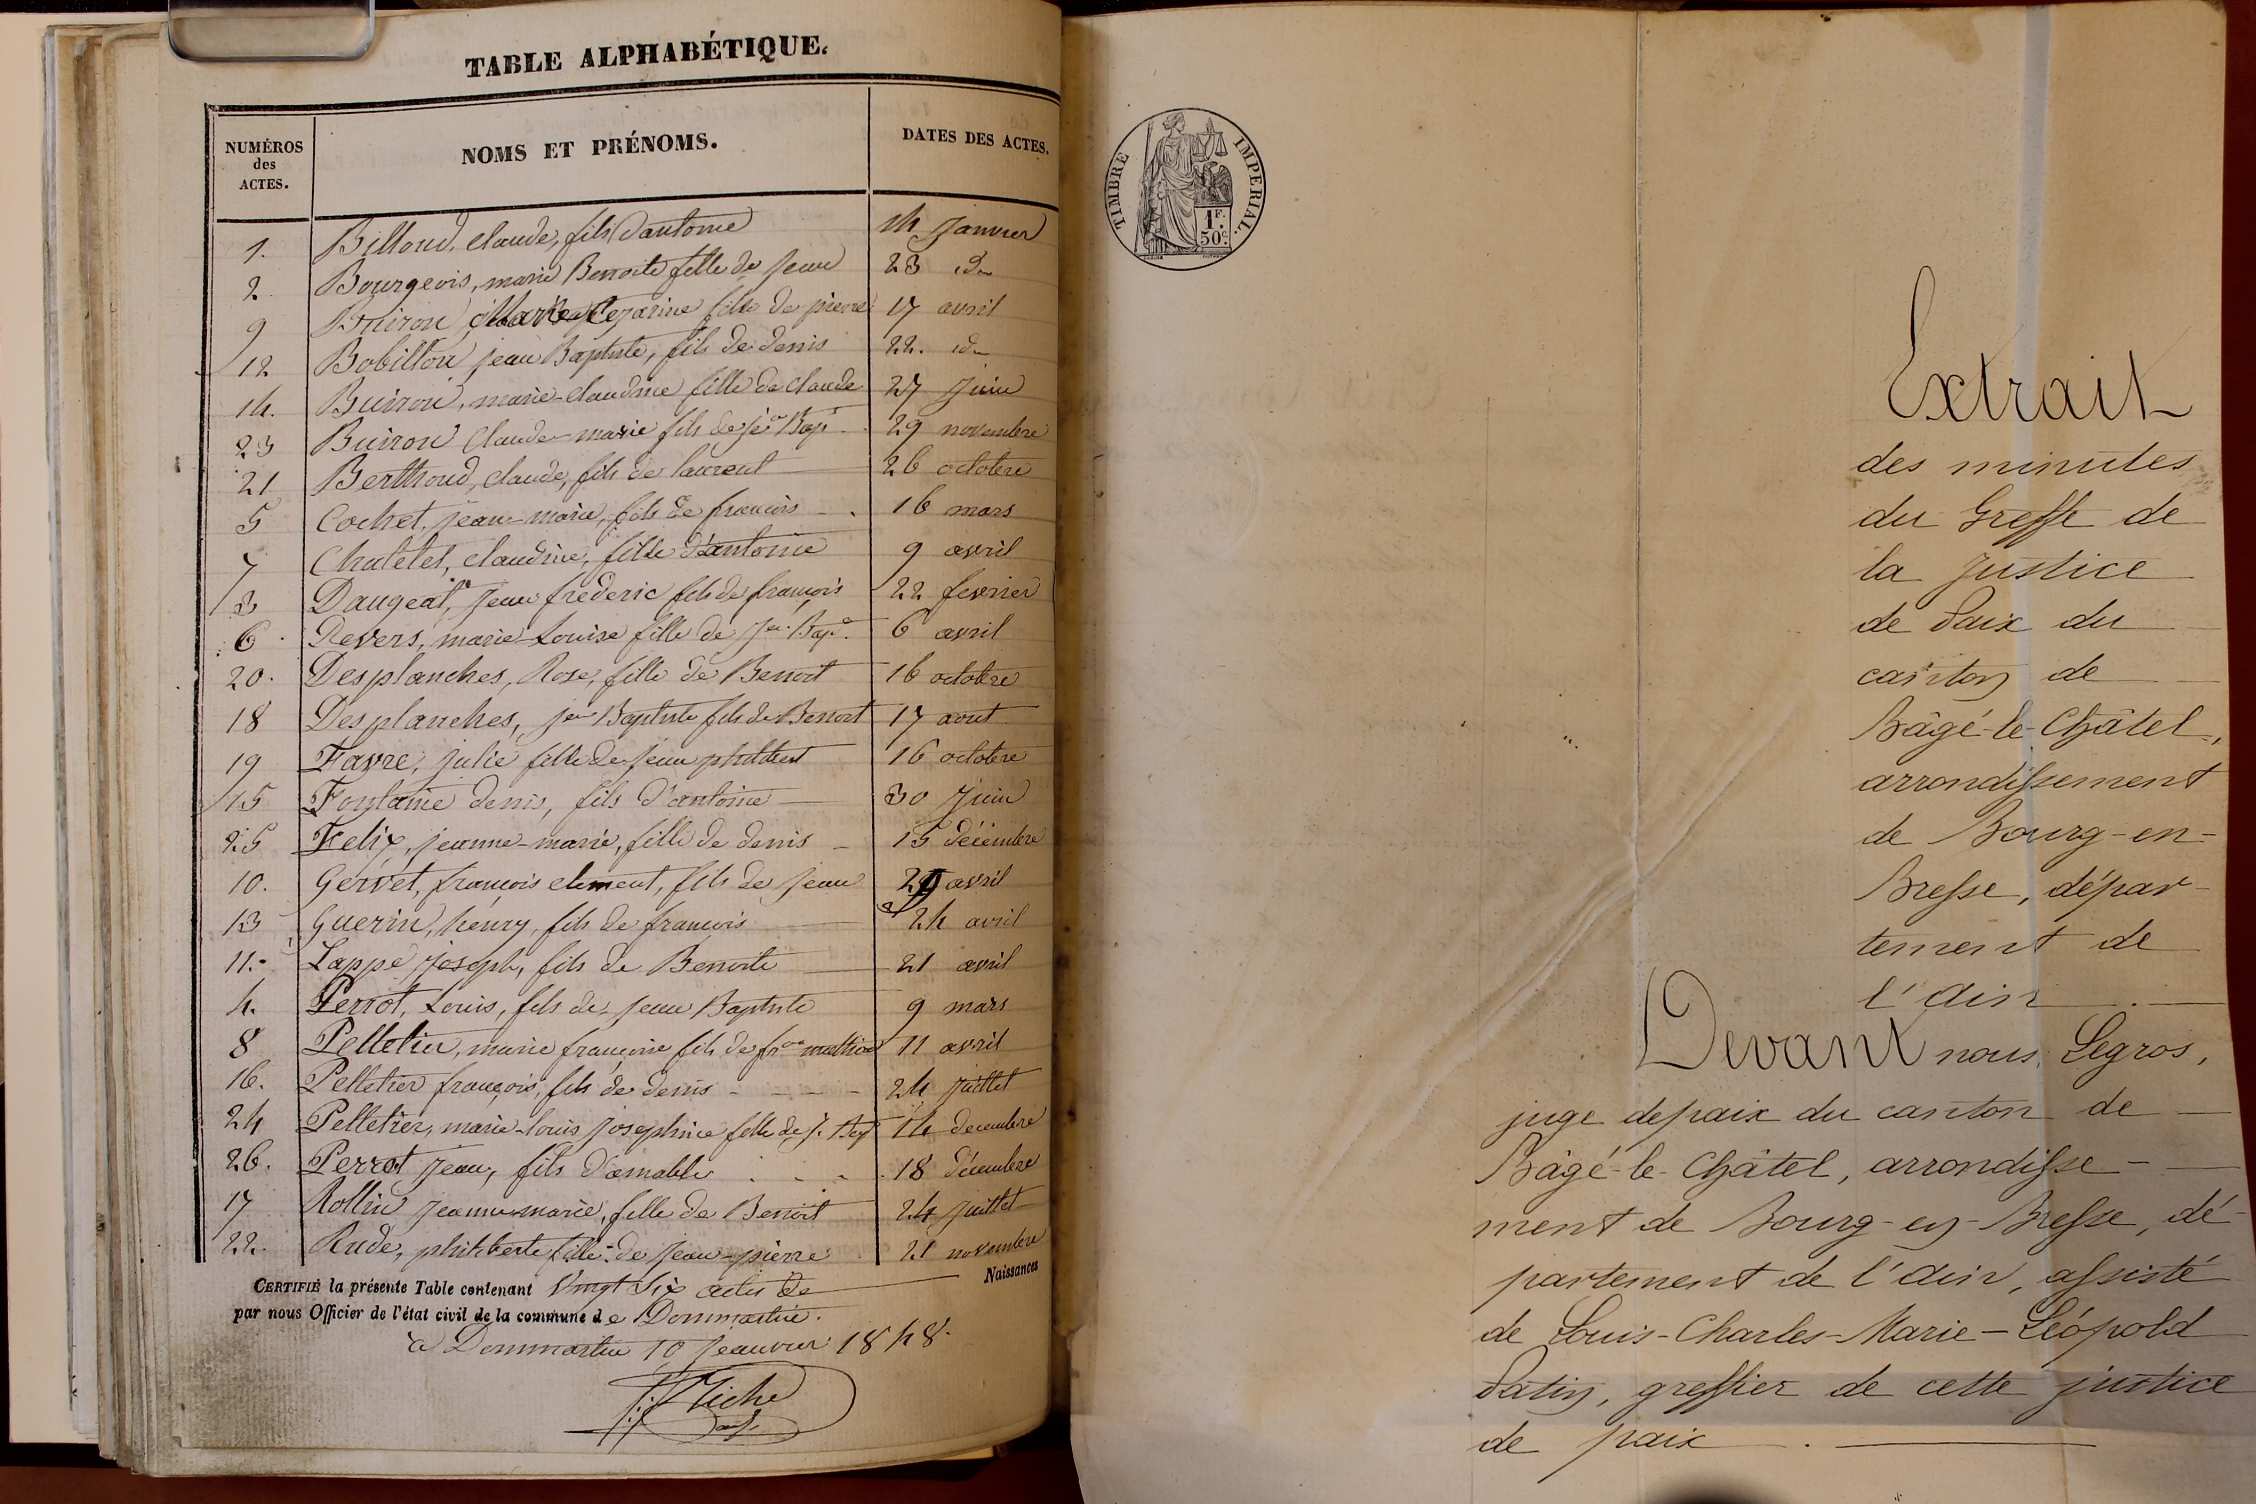 TABLE ALPHABÉTIQUE.
NUMÉROS des ACTES. NOMS ET PRÉNOMS. DATES DES ACTES.
1. Billoud, claude, fils d'antoine 14 Janvier
2 Bourgeois, marie Benoite fille de Jean 23 do
9 Buiron, Marie Cezarine fille de pierre 17 avril
12 Bobillon jean Baptiste, fils de denis 22. do
14. Buiron, marie-claudine fille de claude 27 Juin
23 Buiron Claude-marie fils de Jn Bapt 29 novembre
21 Berthoud, claude, fils de laurent 26 octobre
5 Cochet, jean-marie, fils de francois 16 mars
7 Chatelet, claudine, fille d'antoine 9 avril
3 Daugeat, Jean frederic fils de françois 22 fevrier
6. Devers, marie-Louise fille de Jn. Bapte. 6 avril
20. Desplanches, Rose, fille de Benoit 16 octobre
18 Desplanches, Jn Baptiste fils de Benoit 17 aout
19 Favre, julie fille de Jean philibert 16 octobre
15 Fontaine denis, fils d'antoine 30 Juin
25 Felix, jeanne-marie, fille de denis 15 décembre
10. Gervet, francois clement, fils de Jean avril
13 Guerin, henry, fils de francois 24 avril
11. Lappe Joseph, fils de Benoite 21 avril
4. Perrot, Louis, fils de Jean Baptiste 9 mars
8 Pelletier, marie françoise fils de 11 avril
16. Pelletier françois, fils de denis 24 juillet
24 Pelletier, marie-louis Josephine fille de J. Bapt 14 decembre
26. Perrot Jean, fils d'aimable 18 décembre
17 Rollin Jeanne-marie, fille de Benoit 24 Juillet
22. Rude, philiberte fille de Jean-pierre 21 novembre
CERTIFIÉ la présente Table contenant Vingt Six actes de Naissances
par nous Officier de l'état civil de la commune de Dommartin.
à Dommartin 10 Jeanvier 1848.
TIMBRE IMPERIAL.
1F. 50c.
Extrait
des minutes
du Greffe de
la Justice
de Paix du
canton de
Bâgé-le-Châtel,
arrondissement
de Bourg-en-
Bresse, dépar-
tement de
l'Ain
Devant nous, Legros,
juge de paix du canton de
Bâgé-le-Châtel, arrondisse-
ment de Bourg-en-Bresse, dé-
partement de l'Ain, assisté
de Louis-Charles-Marie-Léopold
Patin, greffier de cette justice
de paix